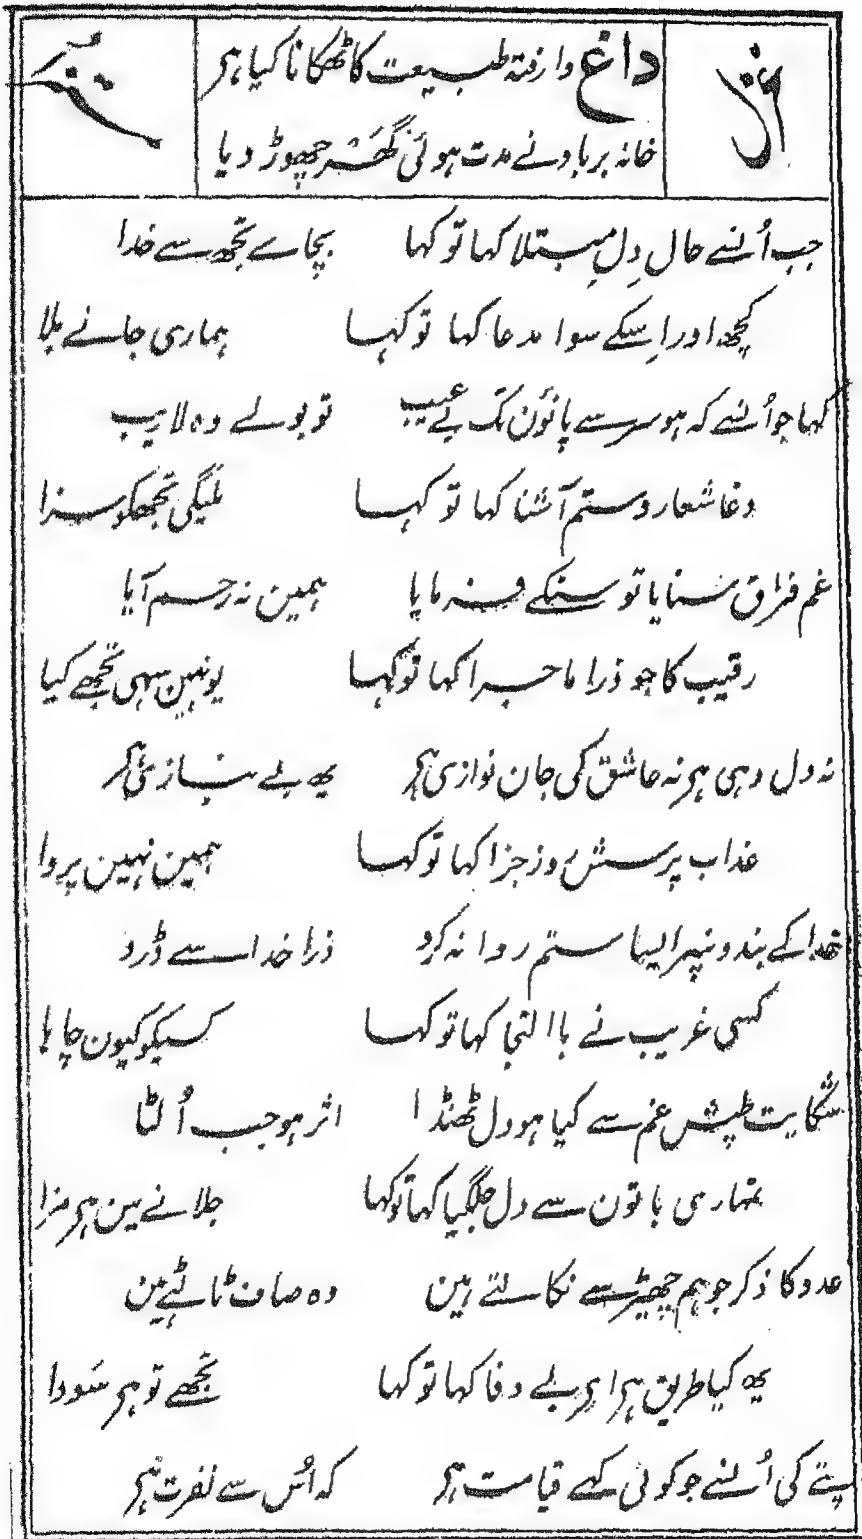 داغ وارفتہ طبیعت کا ٹھکانا کیا ہے
خانہ برباد نے مدت ہوئی گھر چھوڑ دیا
جب اُنسے حال دِل مبتلا کہا تو کہا بچاے تجھ سے خدا
کچھ اور اِسکے سوا مدعا کہا تو کہا ہماری جانے بلا
کہا جو اُنسے کہ ہو سر سے پانؤن تک بے عیب تو بولے وہ لاریب
دغا شعار و ستم آشنا کہا تو کہا ملیگی تجھکو سزا
غم فراق سنایا تو سنکے فرمایا ہمین نہ رحم آیا
رقیب کا جو ذرا ماجرا کہا تو کہا یونہین سہی تجھے کیا
نہ دل دہی ہے نہ عاشق کی جان نوازی ہے یہ بے نیازی ہے
عذاب پرسش روز جزا کہا تو کہا ہمین نہین پروا
خدا کے بندونپر ایسا ستم روا نہ کرو ذرا خدا سے ڈرو
کسی غریب نے با التجا کہا تو کہا کسیکو کیون چاہا
شکایت طپش غم سے کیا ہو دل ٹھنڈا اثر ہو جب اُلٹا
تمہاری باتون سے دل جلگیا کہا تو کہا جلانے مین ہے مزا
عدو کا ذکر جو ہم چھیڑ سے نکالتے ہین وہ صاف ٹالتے ہین
یہ کیا طریق ہے اے بے وفا کہا تو کہا تجھے تو ہے سَودا
پتے کی اُنسے جو کوئی کہے قیامت ہے کہ اُس سے نفرت ہے